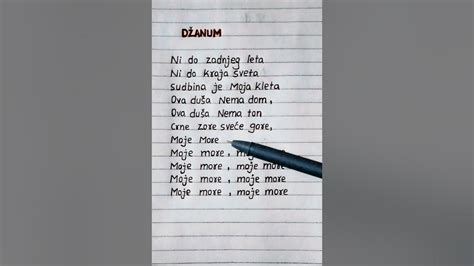 DŽANUM
Ni do zadnjeg leta
Ni do kraja sveta
Sudbina je Moja Kleta
Ova duša Nema dom,
Ova duša Nema ton
Crne zore sveće gore,
Moje More
Moje more, moje more
Moje more, moje more
Moje more, moje more
Moje more, moje more